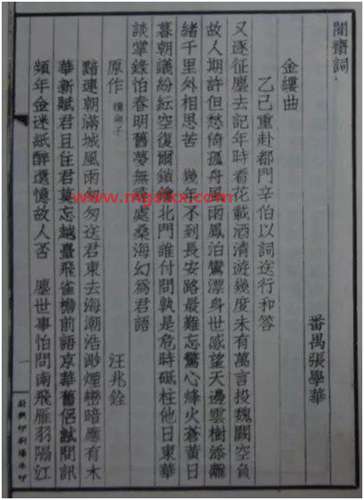 闇齋詞
番禺張學華
金縷曲
乙己重赴都門辛伯以詞送行和答
又逐征塵去記年時看花載酒清游幾度未有萬言投魏闕空負
故人期許但愁倚孤舟風雨鳳泊鸞漂身世感望天邊雲樹添離
緒千里外相思苦 幾年不到長安路最難忘驚心烽火蒼黃日
暮朝議紛紜空復爾鎖鑰北門誰付問孰是危時砥柱他日東華
談掌錄怕春明舊夢無尋處桑海幻為君語
原作 子 汪兆銓
黯連朝滿城風雨匆匆送君東去海潮浩渺煙巒暗應有木
華新賦君且住君莫忘越臺飛雀檐前語京華舊侶試問訊
頻年金迷紙醉還憶故人否 塵世事怕問南飛雁羽隔江
一
蔚興印刷場承印